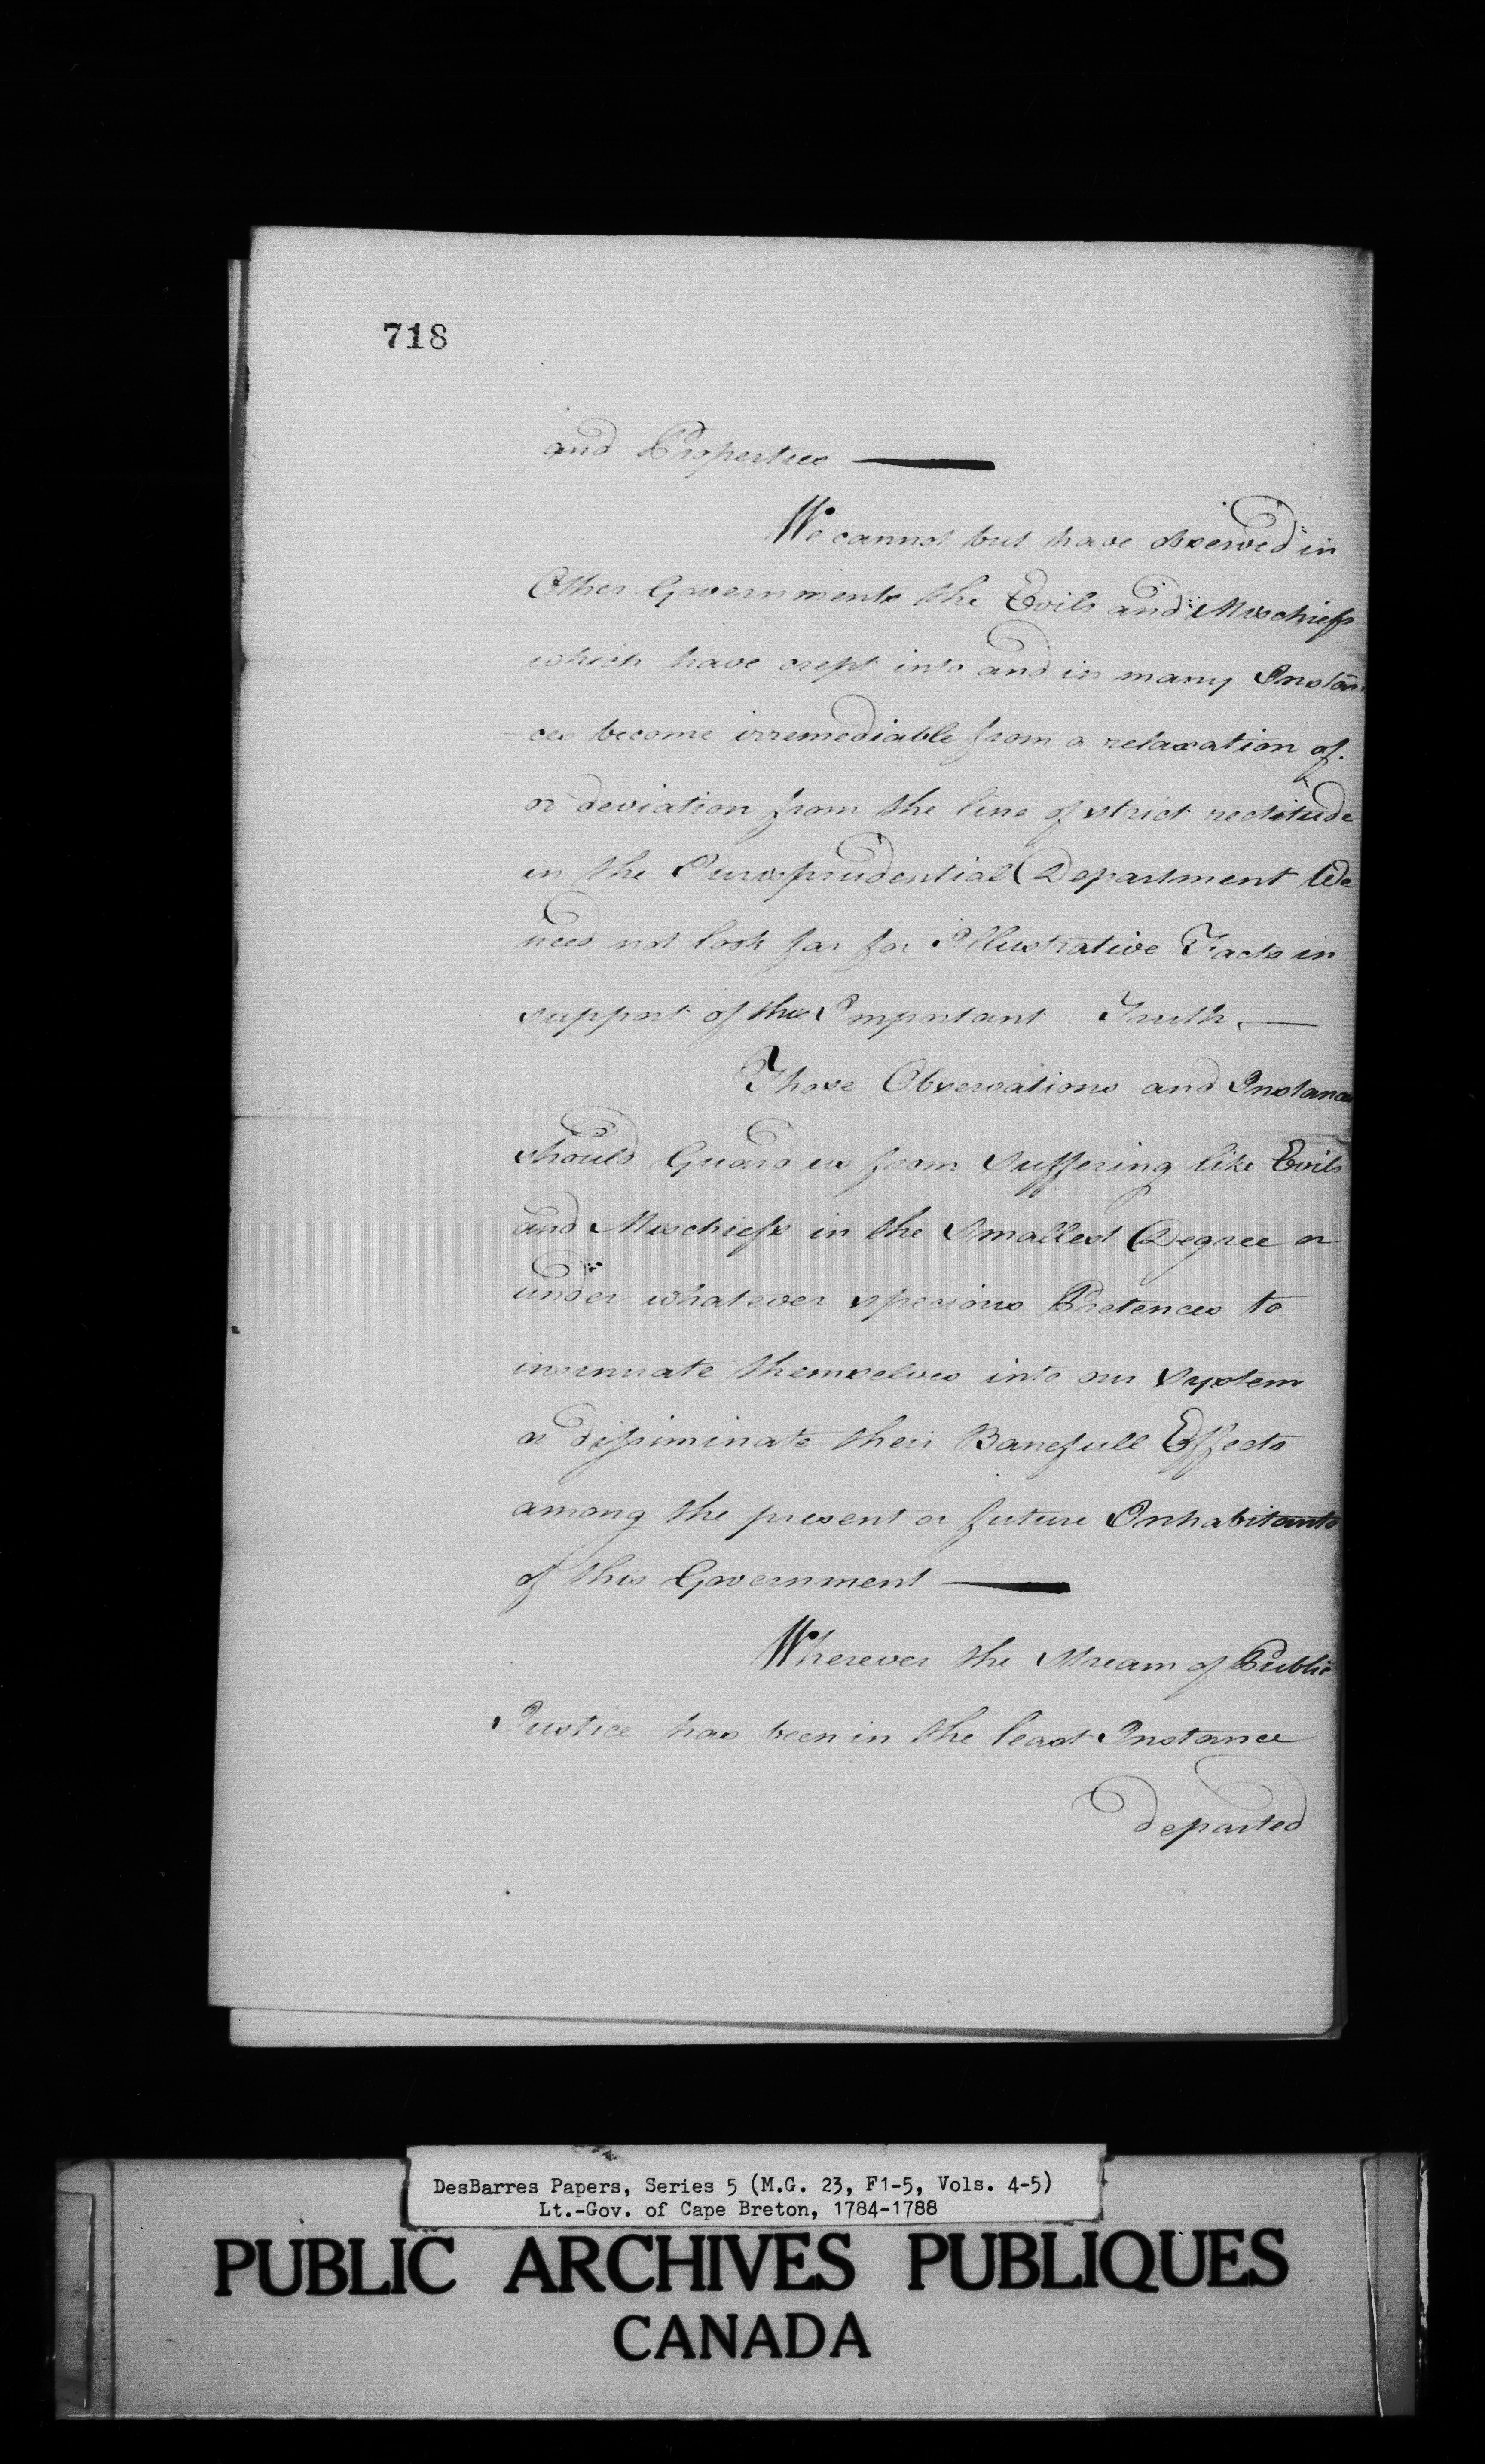 718
and Properties —
We cannot but have observed in
Other Governments the Evils and Mischiefs
which have crept into and in many Instan
-ces become irremediable from a relaxation of
or deviation from the line of strict rectitude
in the Jurisprudential Department We
need not look far for Illustrative Facts in
support of this Important Truth. —
Those Observations and Instances
should Guard us from suffering like Evils
and Mischiefs in the Smallest Degree or
under whatever specious Pretences to
insinuate themselves into our System
or dissiminate their Banefull Effects
among the present or future Inhabitants
of this Government —
Wherever the Stream of Public
Justice has been in the least Instance
departed
DesBarres Papers, Series 5 (M.G. 23, F1-5, Vols. 4-5)
Lt.-Gov. of Cape Breton, 1784-1788
PUBLIC ARCHIVES PUBLIQUES
CANADA